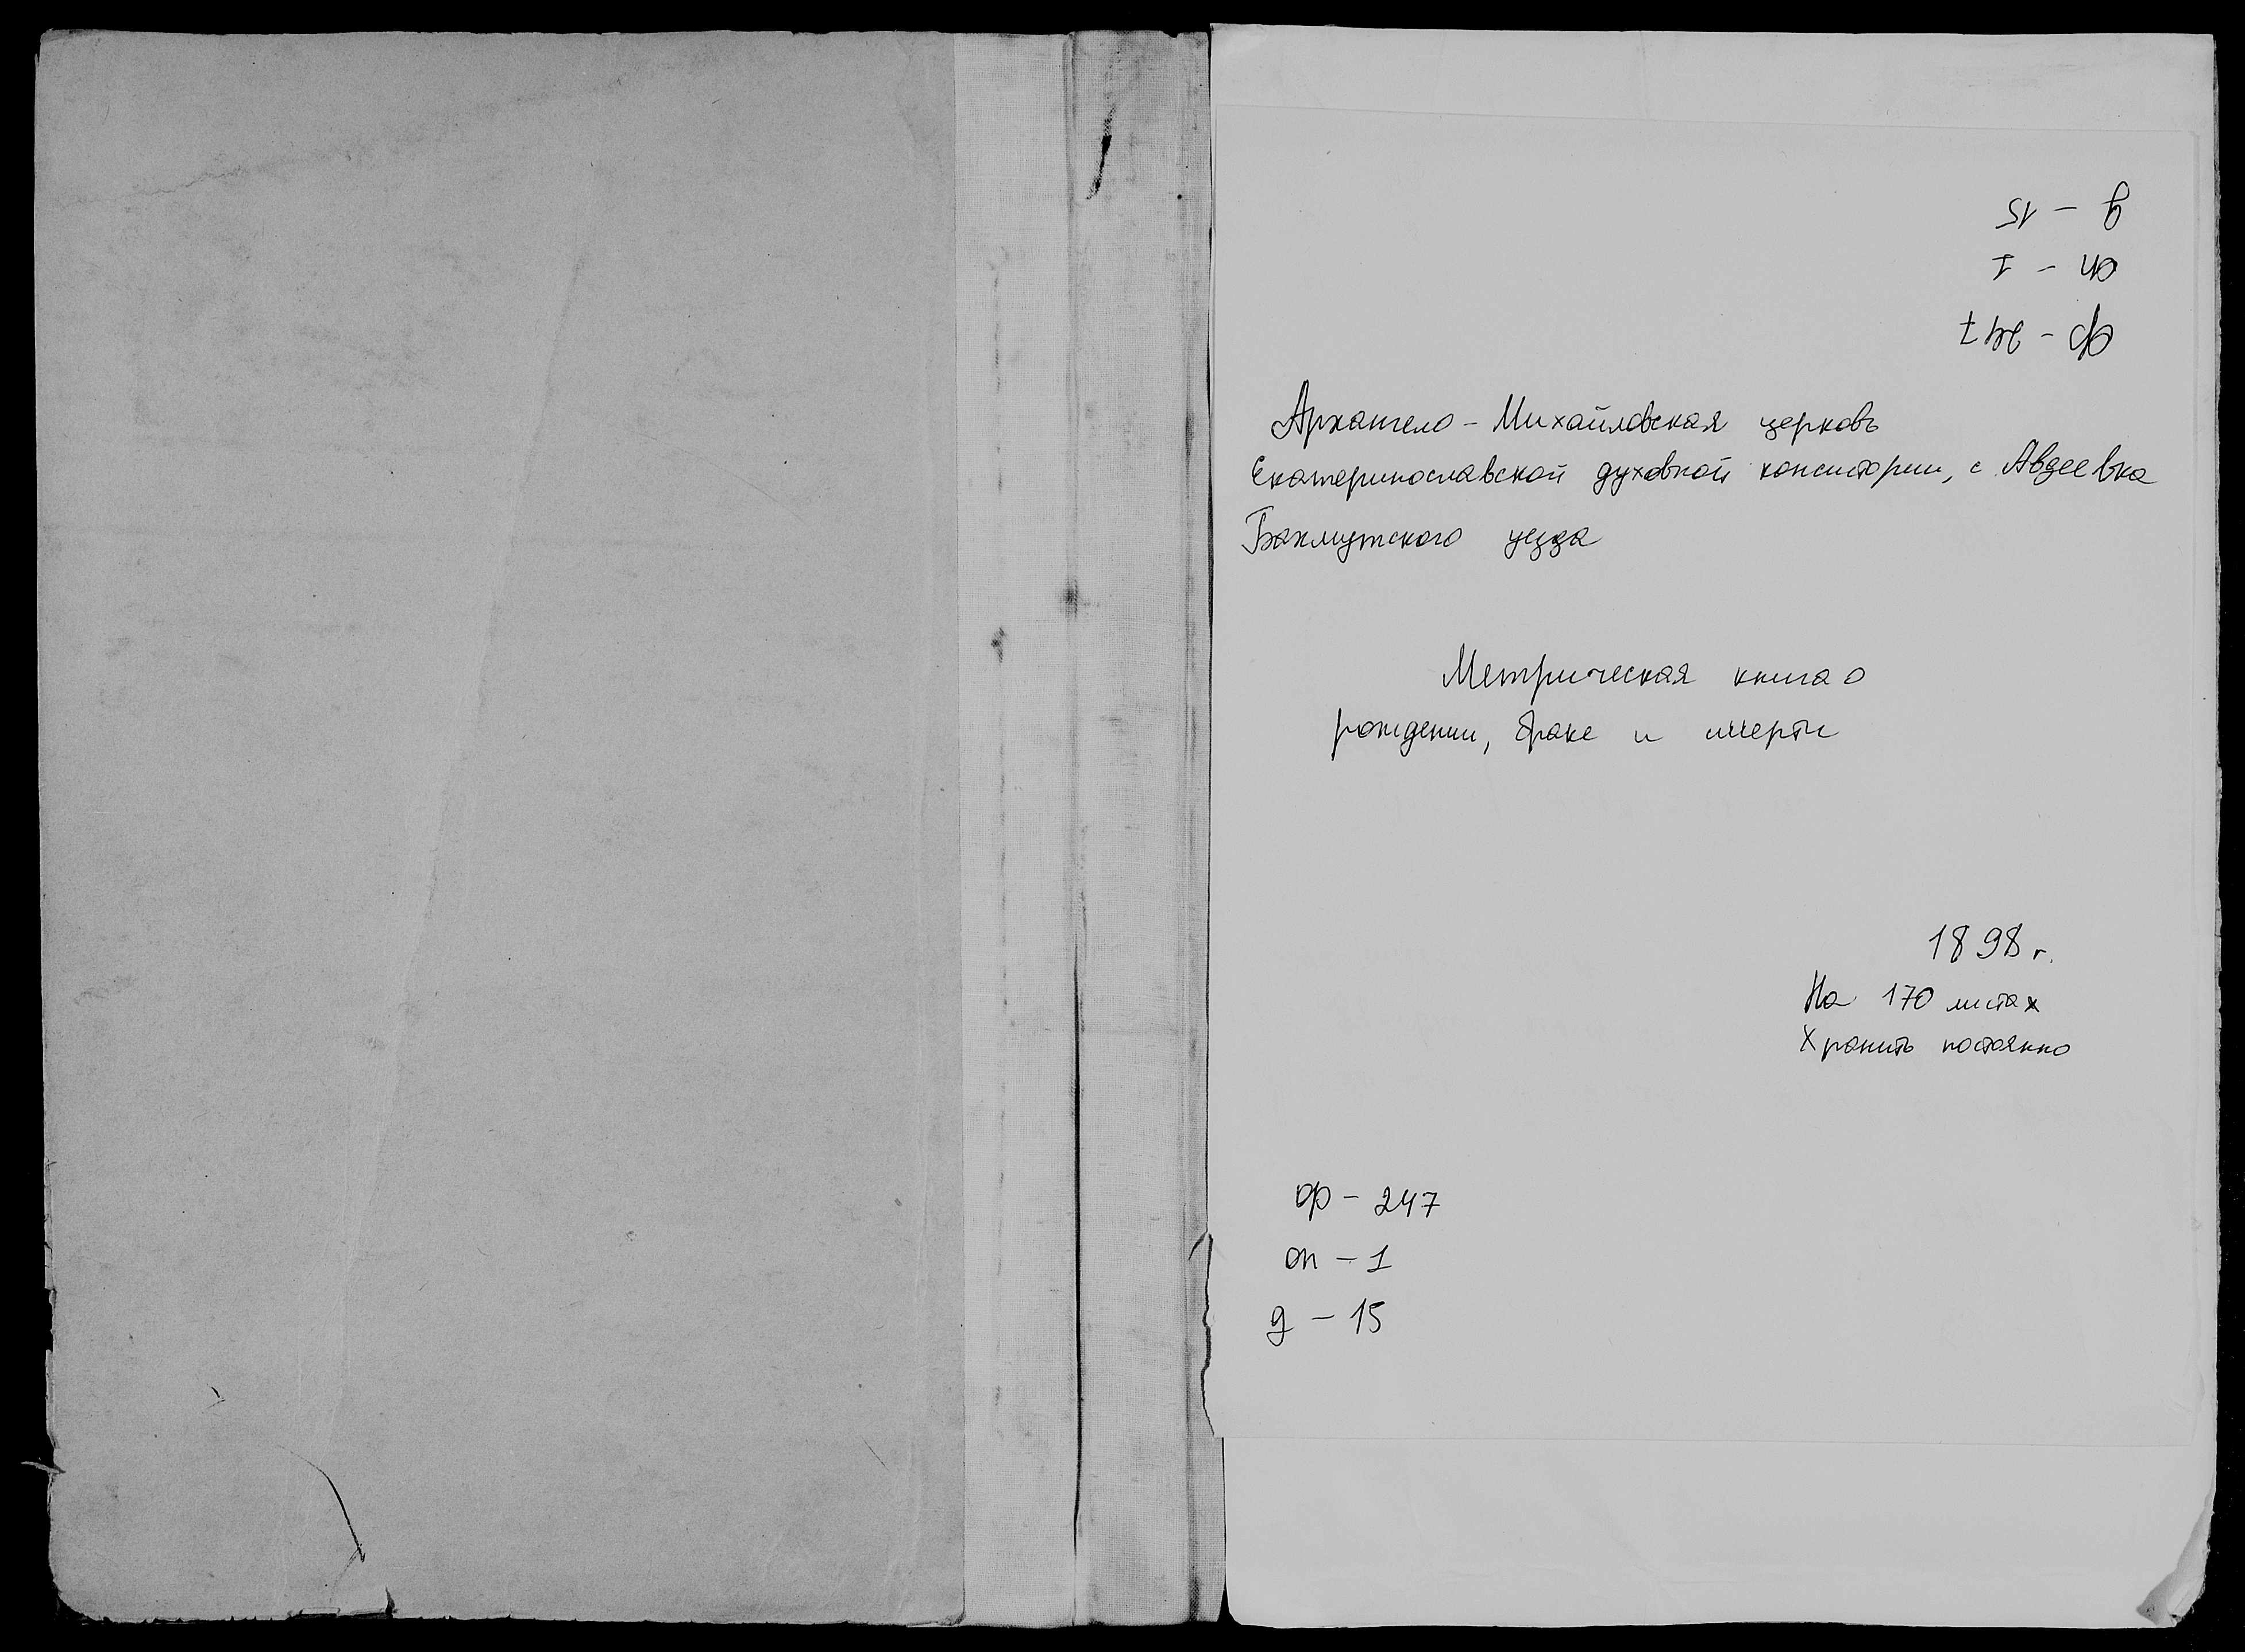 ф - 247
оп - 1
д - 15
Архангело - Михайловская церковь
Екатеринославской духовной консистории, с Авдеевка
Бахмутского уезда
Метрическая книга о
рождении, браке и смерти
1898 г.
На 170 листах
Хранить постоянно
ф - 247
оп - 1
д - 15